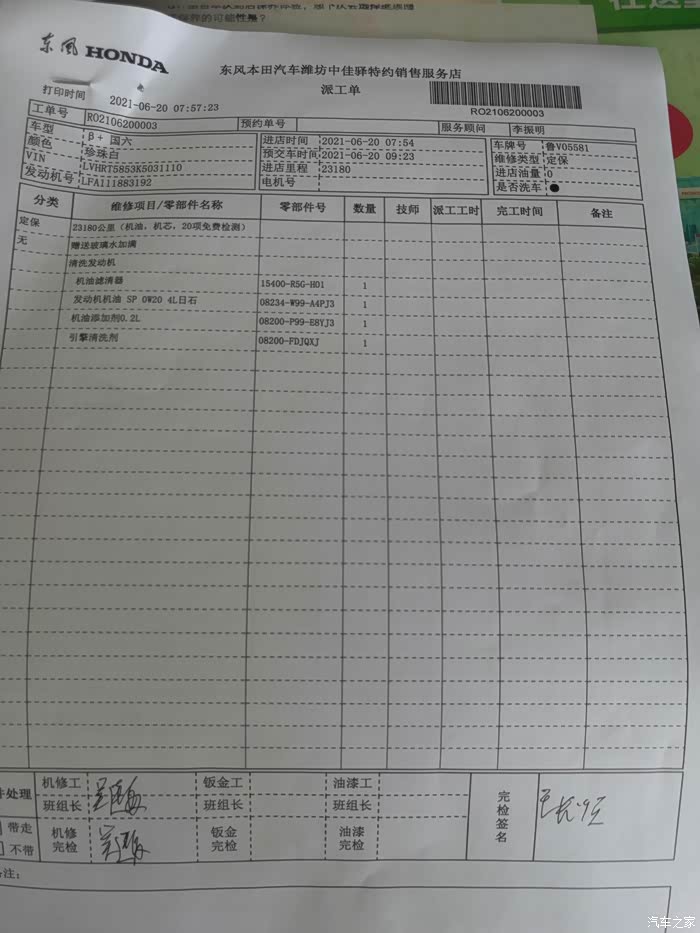 养的可能性是？
东风 HONDA
东风本田汽车潍坊中佳驿特约销售服务店
派工单
打印时间 2021-06-20 07:57:23
RO2106200003
工单号 RO2106200003 预约单号 服务顾问 李振明
车型 β+ 国六 进店时间 2021-06-20 07:54 车牌号 鲁V05581
颜色 珍珠白 预交车时间 2021-06-20 09:23 维修类型 定保
VIN LVHRT5853K5031110 进店里程 23180 进店油量 0
发动机号 LFA111883192 电机号 是否洗车
分类 维修项目/零部件名称 零部件号 数量 技师 派工工时 完工时间 备注
定保 23180公里（机油，机芯，20项免费检测）
无 赠送玻璃水加满
清洗发动机
机油滤清器 15400-R5G-H01 1
发动机机油 SP 0W20 4L日石 08234-W99-A4PJ3 1
机油添加剂0.2L 08200-P99-E8YJ3 1
引擎清洗剂 08200-FDJQXJ 1
件处理 机修工班组长 钣金工班组长 油漆工班组长 完检签名
带走
不带 机修完检 钣金完检 油漆完检
备注：
汽车之家